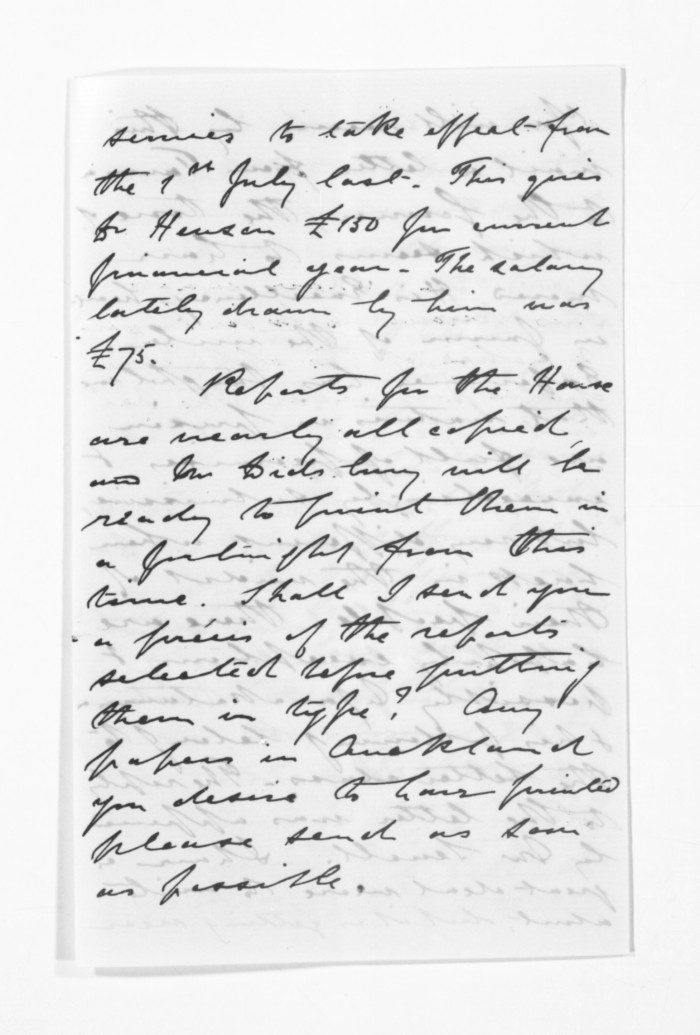 services to take effect from
the 1st July last. This gives
Dr Henson £150 for current
financial year - The salary
lately drawn by him was
£75.
Reports for the House
are nearly all copied,
and Mr Didsbury will be
ready to print them in
a fortnight from this
time. Shall I send you
a précis of the reports
selected before putting
them in type? Any
papers in Auckland
you desire to have printed
please send as soon
as possible.